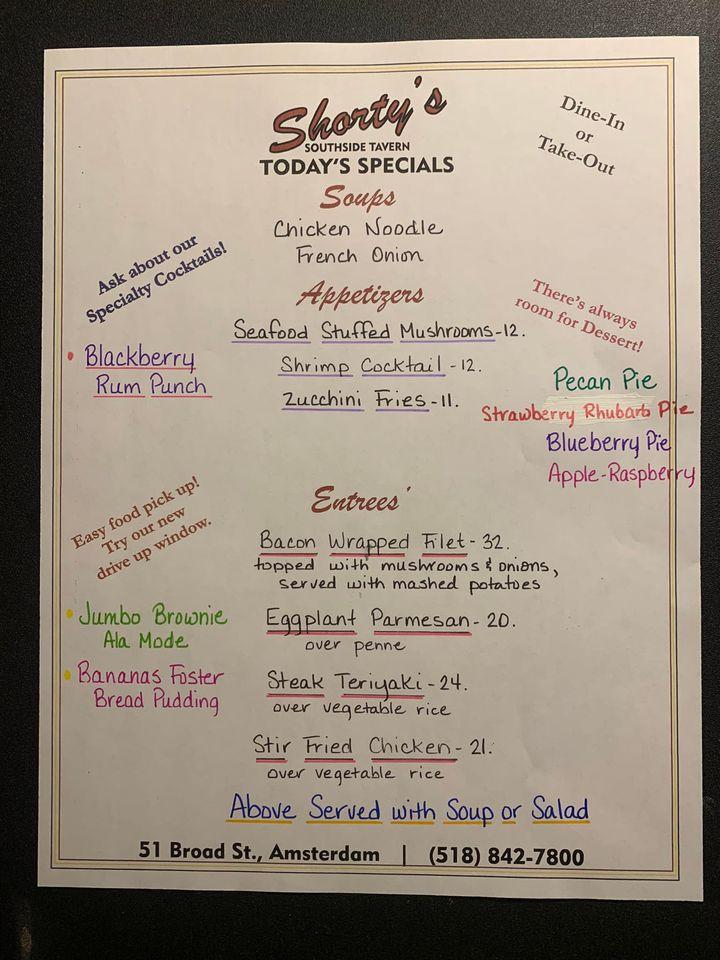 Shorty's
SOUTHSIDE TAVERN
TODAY'S SPECIALS
Dine-In
or
Take-Out
Soups
Chicken Noodle
French Onion
Ask about our
Specialty Cocktails!
Blackberry
Rum Punch
Appetizers
Seafood Stuffed Mushrooms-12.
Shrimp Cocktail-12.
Zucchini Fries-11.
There's always
room for Dessert!
Pecan Pie
Strawberry Rhubarb Pie
Blueberry Pie
Apple-Raspberry
Easy food pick up!
Try our new
drive up window.
Jumbo Brownie
Ala Mode
Bananas Foster
Bread Pudding
Entrees'
Bacon Wrapped Filet-32.
topped with mushrooms & onions,
served with mashed potatoes
Eggplant Parmesan-20.
over penne
Steak Teriyaki-24.
over vegetable rice
Stir Fried Chicken-21.
over vegetable rice
Above Served with Soup or Salad
51 Broad St., Amsterdam | (518) 842-7800